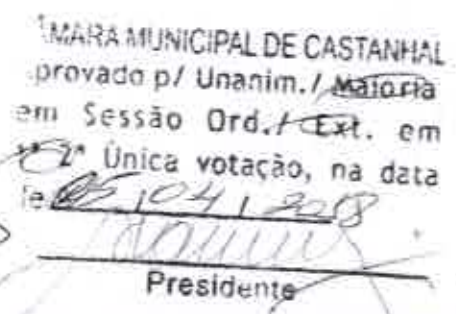 MARA MUNICIPAL DE CASTANHAL
provado p/ Unanim./ Maioria
em Sessão Ord./ Ext. em
1ª 2ª Única votação, na data
e 05/04/2018
Presidente